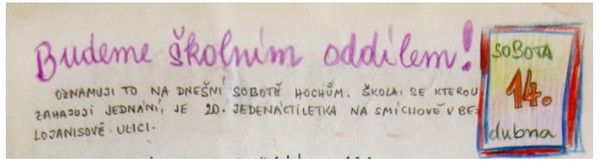 Budeme školním oddílem!
SOBOTA
14.
dubna
OZNAMUJI TO NA DNEŠNÍ SOBOTĚ HOCHŮM. ŠKOLA, SE KTEROU
ZAHAJUJI JEDNÁNÍ, JE 20. JEDENÁCTILETKA NA SMÍCHOVĚ V BEZ
LOJANISOVĚ ULICI.